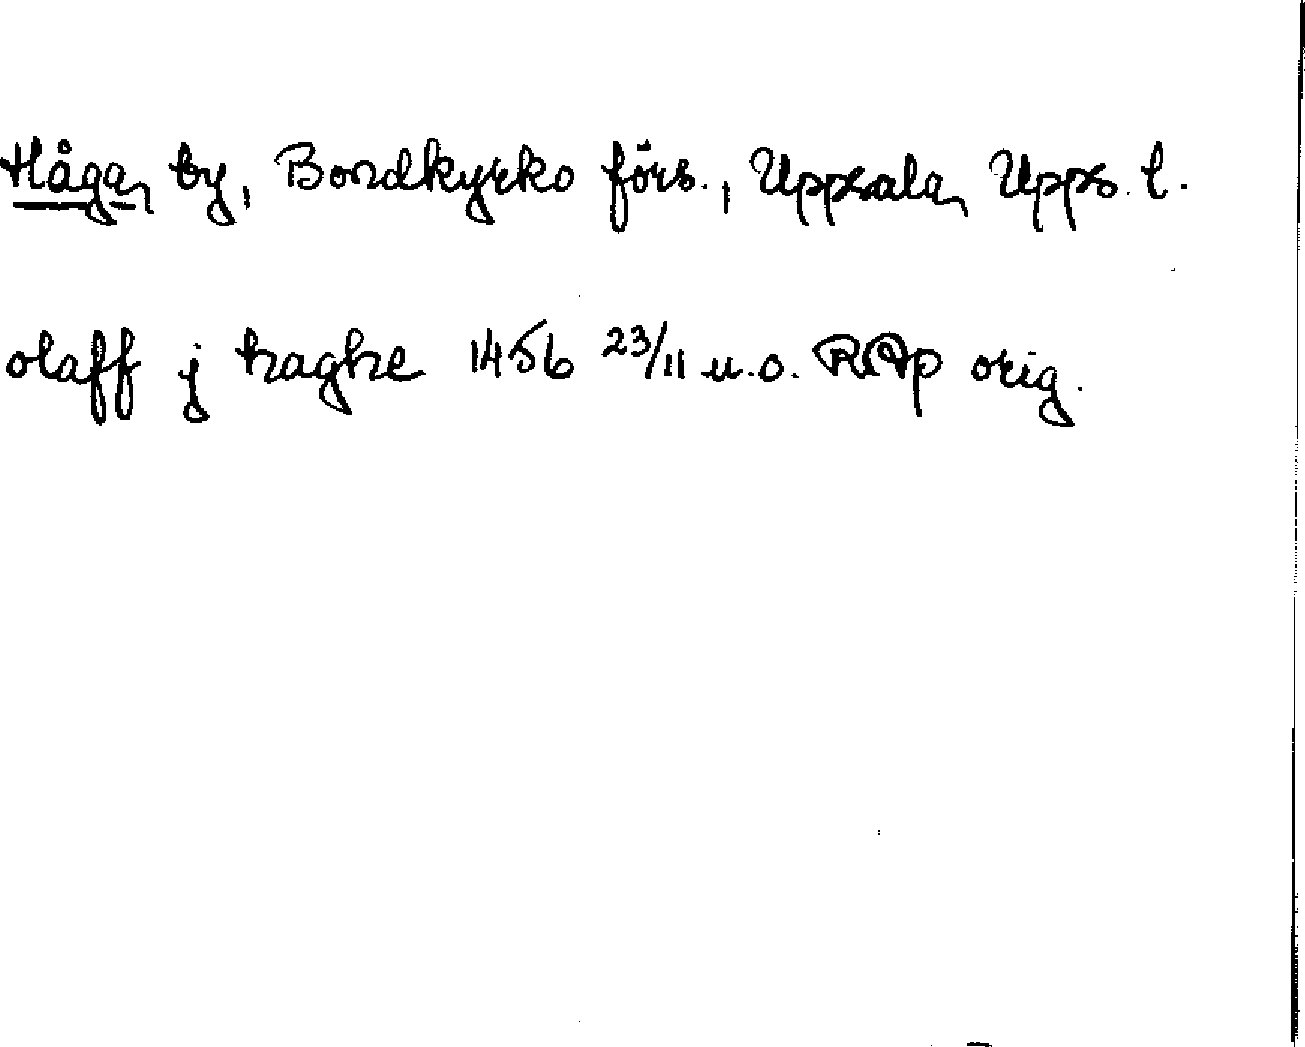 Håga, by, Bondkyrko förs., Uppsala, Upps. l.
olaff j haghe 1456 23/11 u.o. RAp orig.